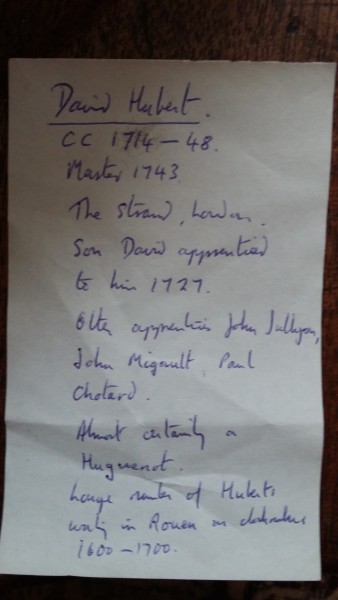 David Hubert.
CC 1714 – 48.
Master 1743
The Strand, London.
Son David apprenticed
to him 1727.
Other apprentices John Jullyon,
John Migault, Paul
Chotard.
Almost certainly a
Huguenot.
Large number of Huberts
working in Rouen as clockmakers
1600 – 1700.